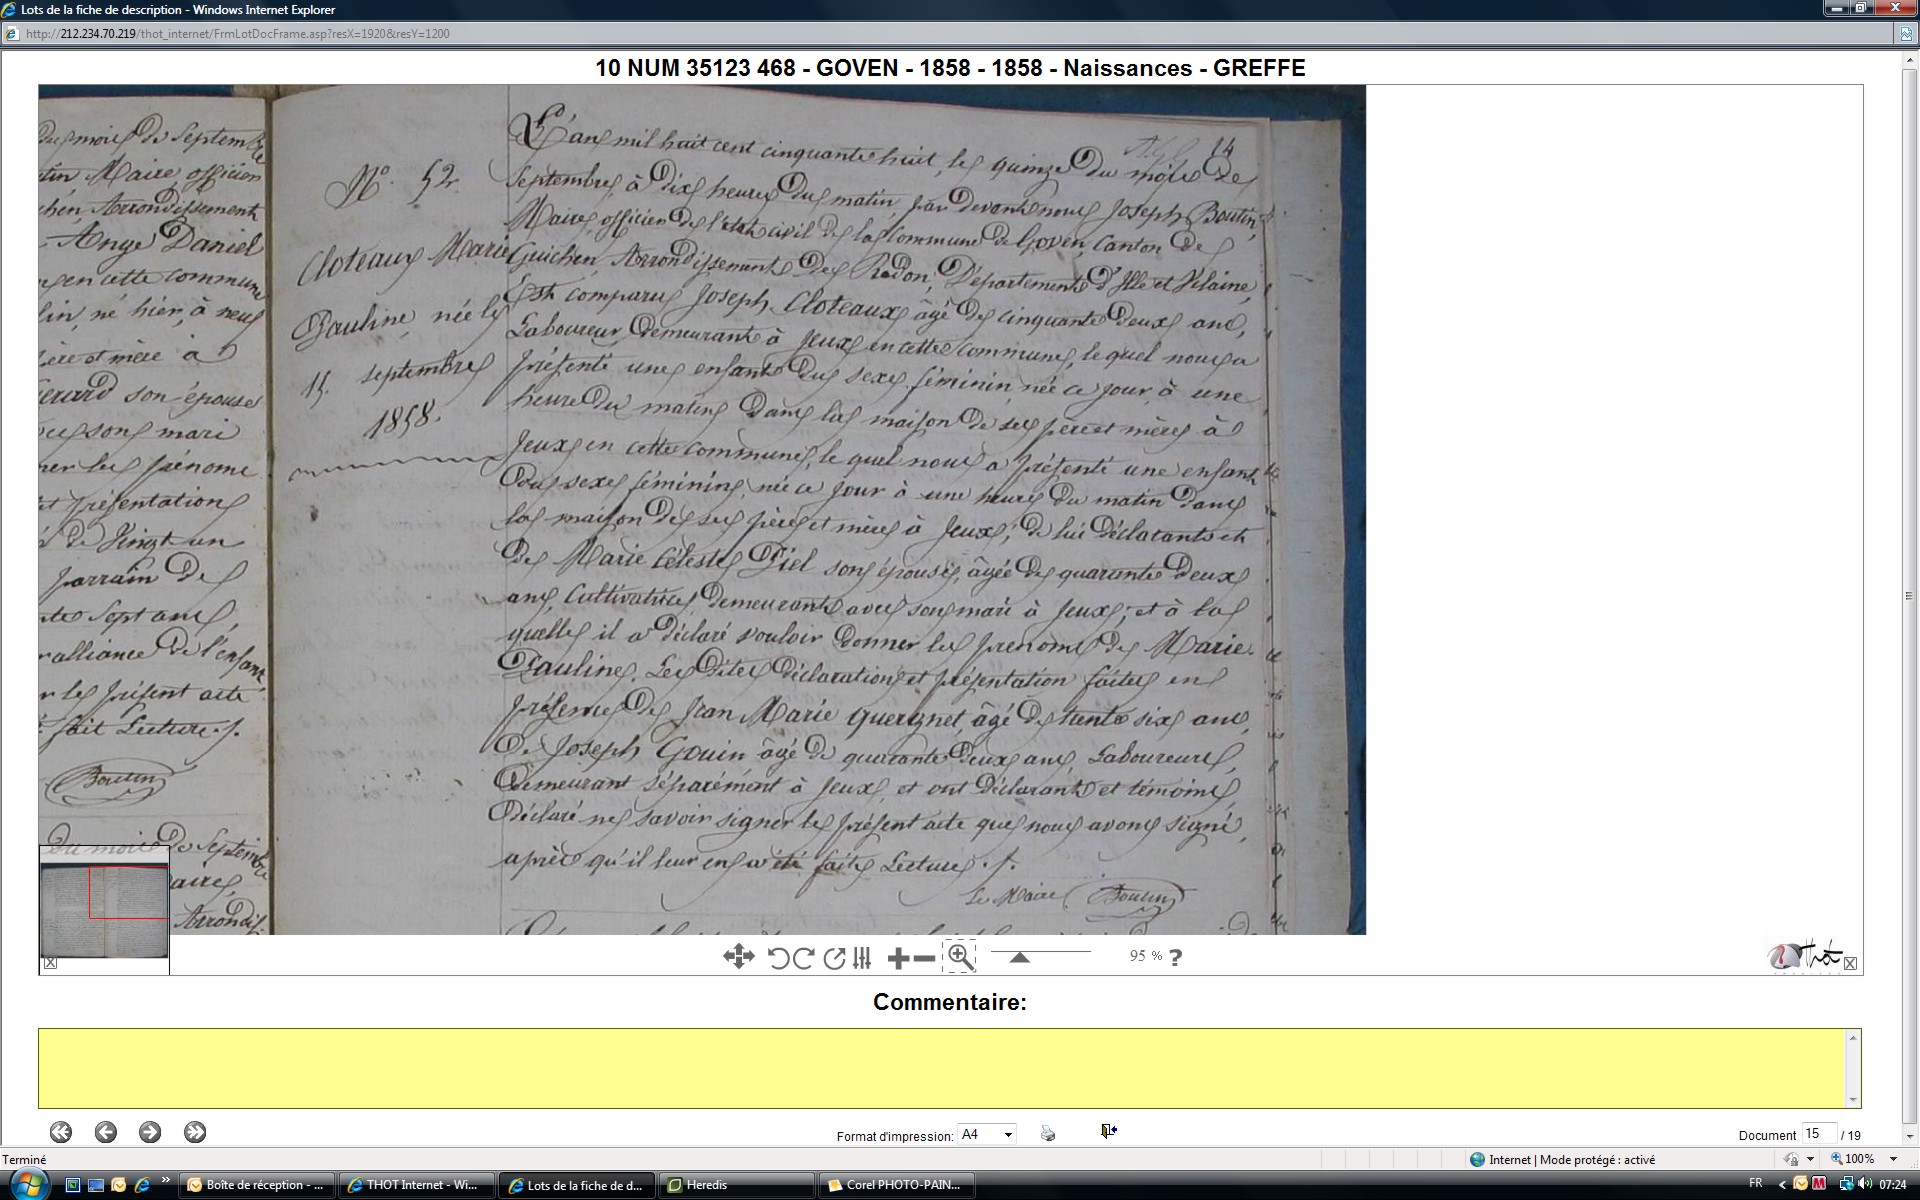 Lots de la fiche de description - Windows Internet Explorer
http://212.234.70.219/thot_internet/FrmLotDocFrame.asp?resX=1920&resY=1200
10 NUM 35123 468 - GOVEN - 1858 - 1858 - Naissances - GREFFE
du mois de Septembre
Maire officier
Arrondissement
Ange Daniel
en cette commune
né hier, à neuf
père et mère à
son épouse
son mari
les prénoms
et présentation
de Vingt un
parrain de
sept ans,
alliance de l'enfant,
le présent acte
fait Lecture./.
Boutin
du mois de Septembre
Maire,
Arrondis
N° 52.
Cloteaux Marie
Pauline, née le
15 septembre
1858.
14
L'an mil huit cent cinquante huit, le quinze du mois de
Septembre, à dix heures du matin, par devant nous Joseph Boutin,
Maire, officier de l'état civil de la Commune de Goven, Canton de
Guichen, Arrondissement de Redon, Département d'Ille et Vilaine,
Est comparu Joseph Cloteaux âgé de cinquante deux ans,
Laboureur, demeurant à Jeux en cette commune, le quel nous a
présenté une enfant du sexe féminin, née ce jour, à une
heure du matin dans la maison de ses père et mère à
Jeux en cette commune, le quel nous a présenté une enfant
du sexe féminin, née ce jour à une heure du matin dans
la maison de ses père et mère à Jeux; de lui déclarant et
de Marie Céleste Piel son épouse, âgée de quarante deux
ans, Cultivatrice, demeurant avec son mari à Jeux; et à la
quelle il a déclaré vouloir donner les prénoms de Marie
Pauline. Les dites déclaration et présentation faites en
présence de Jean Marie Querignet, âgé de trente six ans,
De Joseph Gouin âgé de quarante deux ans, Laboureurs,
Demeurant séparément à Jeux, et ont déclarant et témoins,
Déclaré ne savoir signer le présent acte que nous avons signé,
après qu'il leur en a été fait Lecture./.
Le Maire Boutin
95 % ?
Thot
Commentaire:
Format d'impression: A4
Document 15 / 19
Terminé
Internet | Mode protégé : activé
100%
Boîte de réception - ...
THOT Internet - Wi...
Lots de la fiche de d...
Heredis
Corel PHOTO-PAIN...
FR
07:24